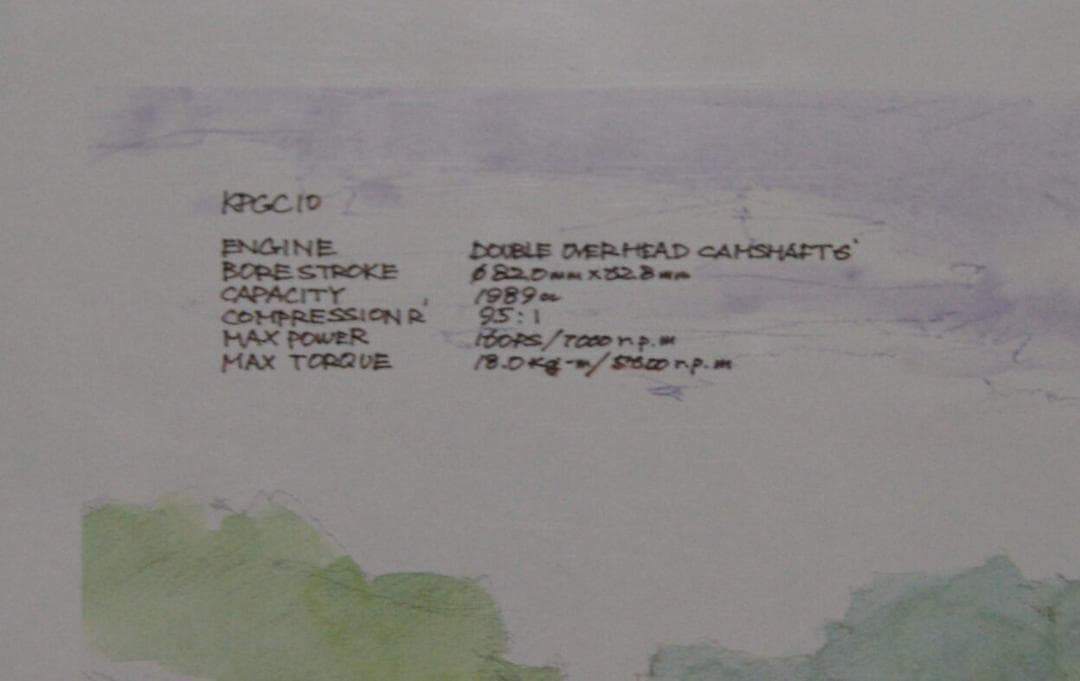 KPGC10
ENGINE DOUBLE OVERHEAD CAMSHAFTS
BORE STROKE φ82.0mm x 62.8mm
CAPACITY 1989cc
COMPRESSION R' 9.5:1
MAX POWER 160PS/7000 r.p.m
MAX TORQUE 18.0kg-m/5600 r.p.m